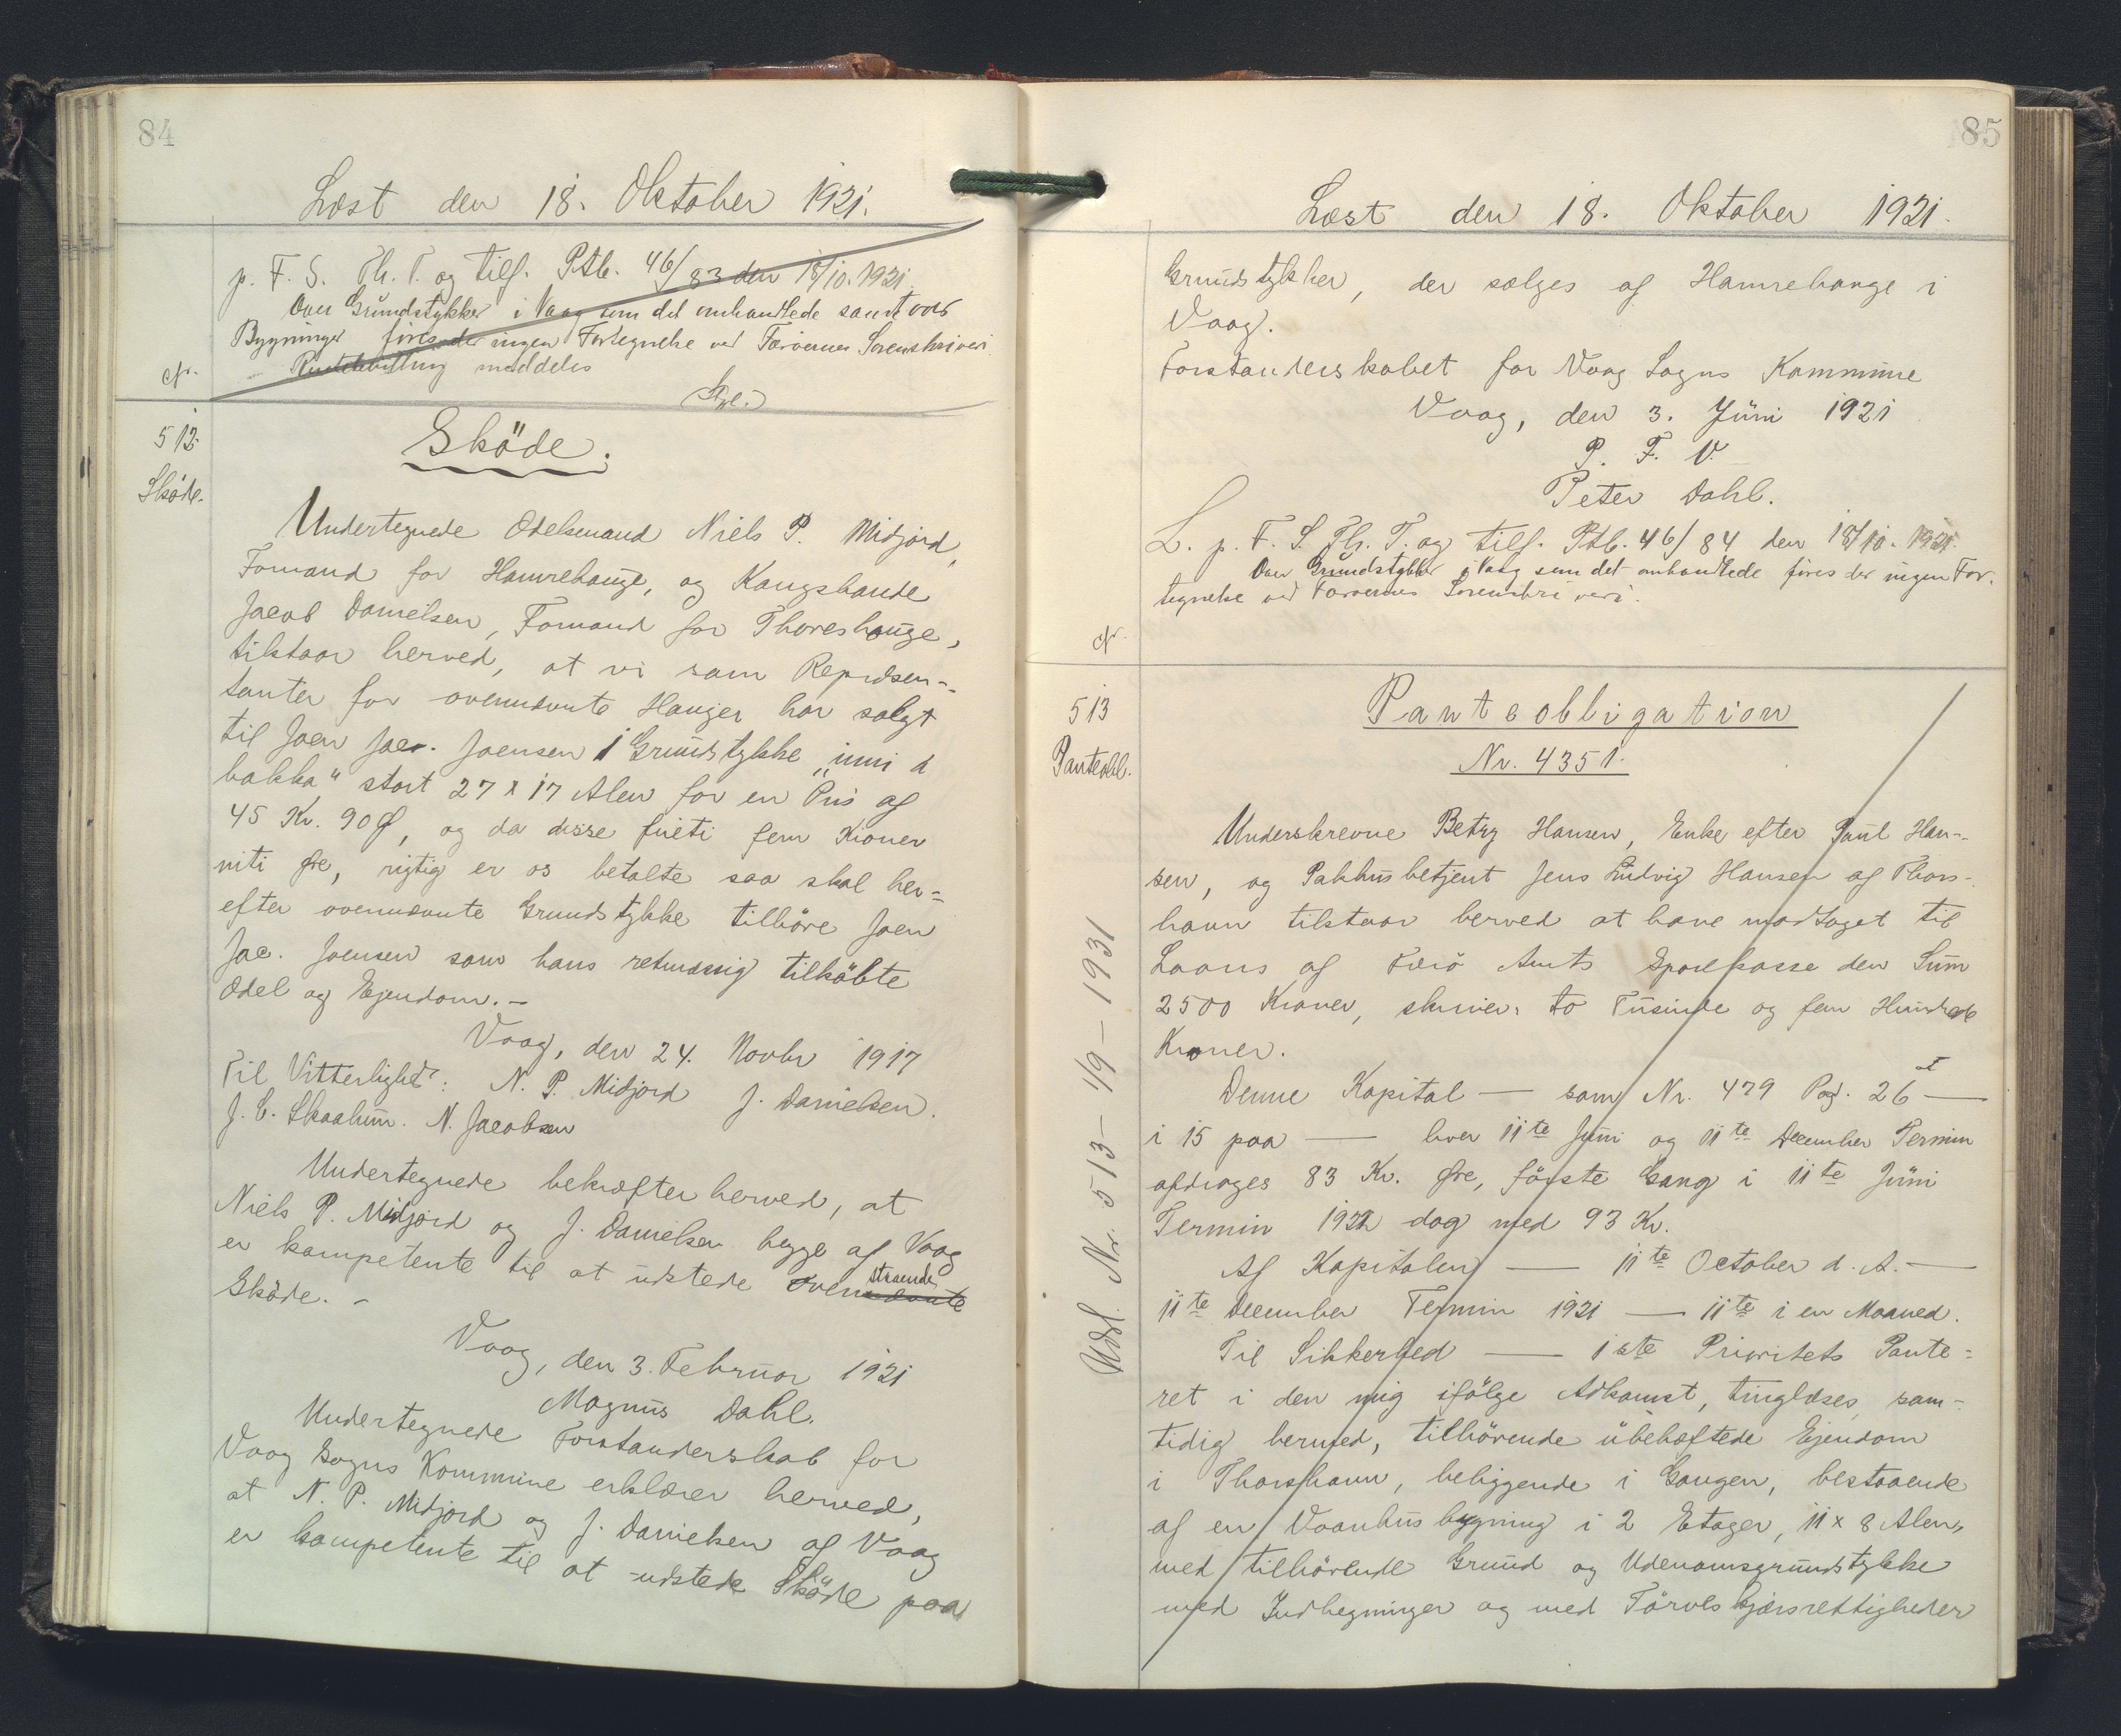 84
Læst den 18. Oktober 1921.
p. F. S. Th. T. og tilf. Ptb. 46/83 den 18/10. 1921.
Over Grundstykker i Vaag som det omhandlede samt over
Bygninger føres der ingen Fortegnelse ved Færøernes Sorenskriveri.
meddeles
Nr.
512
Sköde.
Sköde.
Undertegnede Odelsmand Niels P. Midjord,
Formand for Hamrehauge, og Kongsbonde
Jacob Danielsen, Formand for Thoreshauge,
tilstaar herved, at vi som Repræsen-
tanter for ovennævnte Hauger har solgt
til Joen Jac. Joensen 1 Grundstykke "inni á
bakka" stort 27 x 17 Alen for en Pris af
45 Kr. 90 Ø, og da disse firti fem Kroner
niti Øre, rigtig er os betalte saa skal her=
efter ovennævnte Grundstykke tilhöre Joen
Jac. Joensen som hans retmæssig tilköbte
Odel og Ejendom. -
Vaag, den 24. Novbr 1917
Til Vitterlighed: N. P. Midjord J. Danielsen.
J. C. Skaalum. N. Jacobsen
Undertegnede bekræfter herved, at
Niels P. Midjord og J. Danielsen begge af Vaag
er kompetente til at udstede ovennævnte staaende
Sköde. -
Vaag, den 3. Februar 1921
Magnus Dahl.
Undertegnede Forstanderskab for
Vaag Sogns Kommune erklærer herved,
at N. P. Midjord og J. Danielsen af Vaag
er kompetente til at udstede Sköde paa
85
Læst den 18. Oktober 1921.
Grundstykker, der sælges af Hamrehauge i
Vaag.
Forstanderskabet for Vaag Sogns Kommune
Vaag, den 3. Juni 1921
P. F. V.
Peter Dahl.
L. p. F. S. Th. T. og tilf. Ptb. 46/84 den 18/10. 1921.
Over Grundstykker i Vaag som det omhandlede føres der ingen For-
tegnelse ved Færøernes Sorenskriveri.
Nr.
513
Panteobl.
Panteobligation
Nr. 4351.
Underskrevne Betzy Hansen, Enke efter Paul Han-
sen, og Pakhusbetjent Jens Ludvig Hansen af Thors-
havn tilstaar herved at have modtaget til
Laans af Færö Amts Sparekasse den Sum
2500 Kroner, skriver: to Tusinde og fem Hundrede
Kroner.
Denne Kapital — som Nr. 479 Pag. 26 —
i 15 paa — hver 11te Juni og 11te December Termin
afdrages 83 Kr. Øre, förste Gang i 11te Juni
Termin 1922 dog med 93 Kr.
Af Kapitalen — 11te October d. A. —
11te December Termin 1921 — 11te i en Maaned.
Til Sikkerhed — 1ste Prioritets Pante=
ret i den mig ifölge Adkomst, tinglæses sam-
tidig hermed, tilhörende übehæftede Ejendom
i Thorshavn, beliggende i Gongen, bestaaende
af en Vaanhus bygning i 2 Etager, 11 x 8 Alen,
med tilhörende Grund og Udenomsgrundstykke
med Indhegninger og med Törveskjærsrettigheder
Udsl. Nr. 513 - 4/9 - 1931